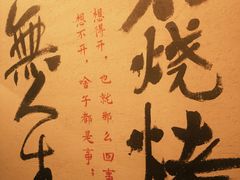 烧烤
想得开，也就那么回事
想不开，啥子都是事；
無人生